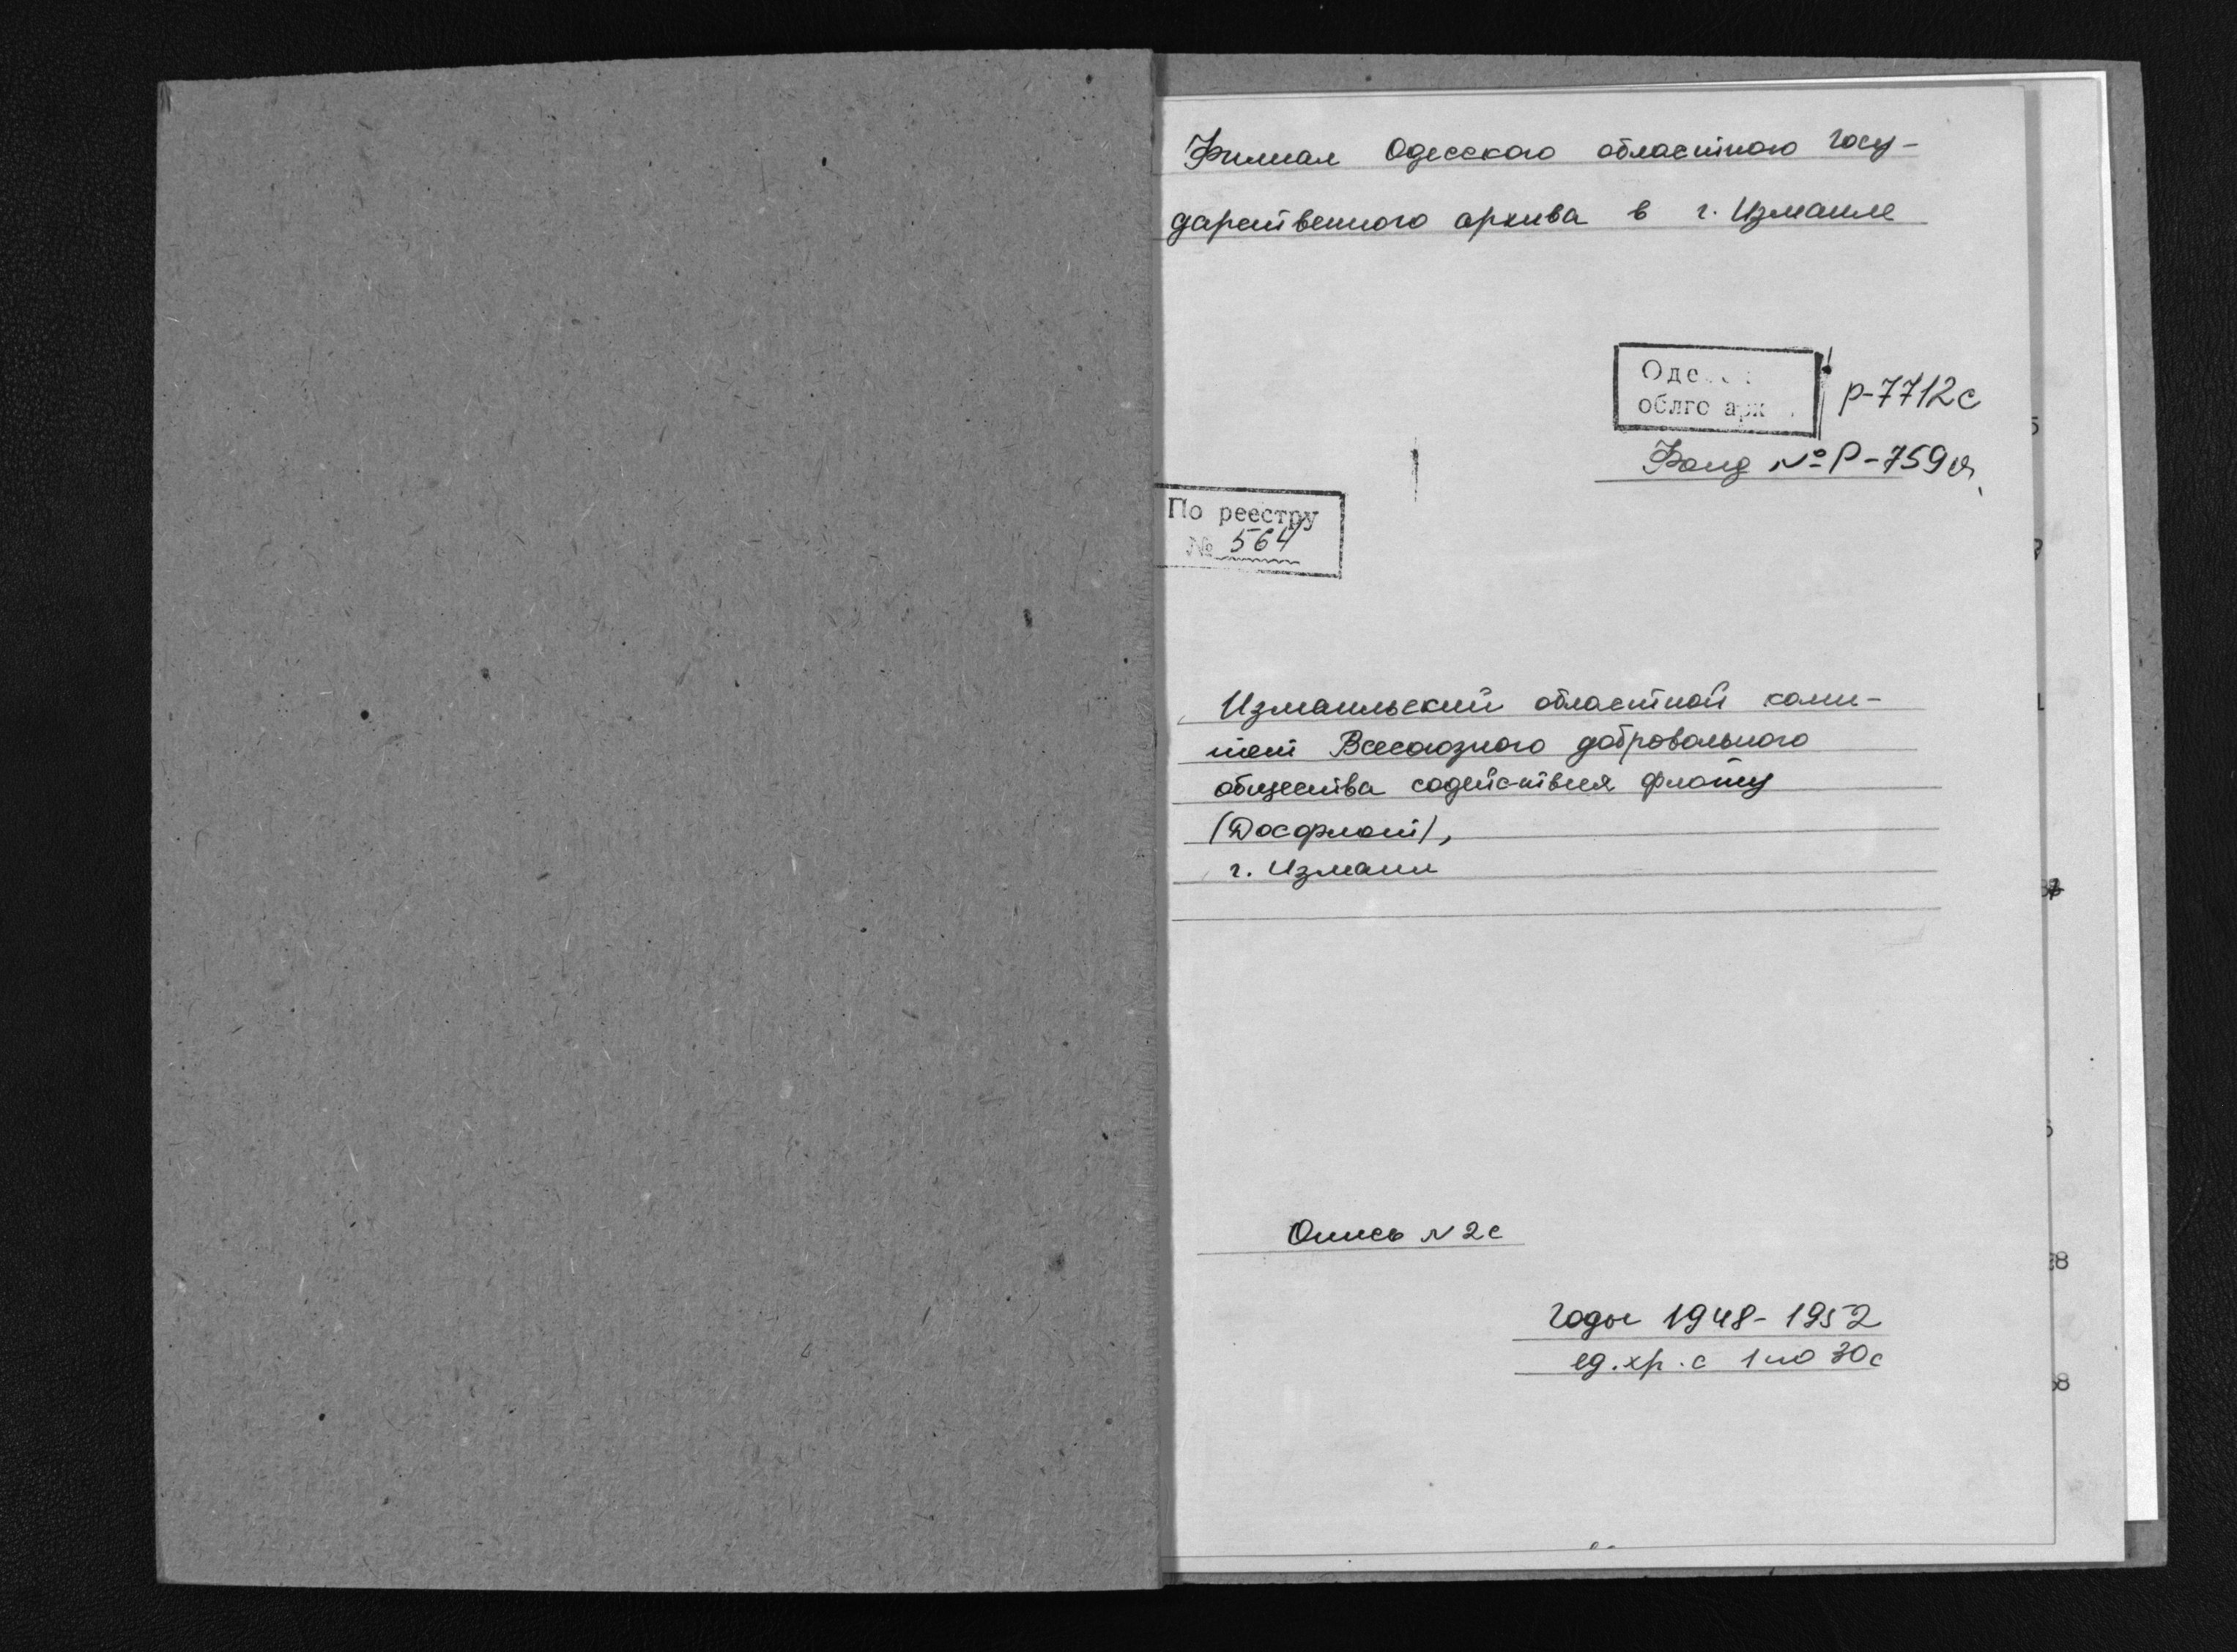 Филиал Одесского областного госу-
дарственного архива в г. Измаиле
облго
Р-7712с
Фонд № Р-759
По реестру
№ 564
Измаильский областной коми-
тет Всесоюзного добровольного
общества содействия флоту
(Досфлот),
г. Измаил
Опись N 2с
Годы 1948-1952
ед.хр.с 1 по 30с